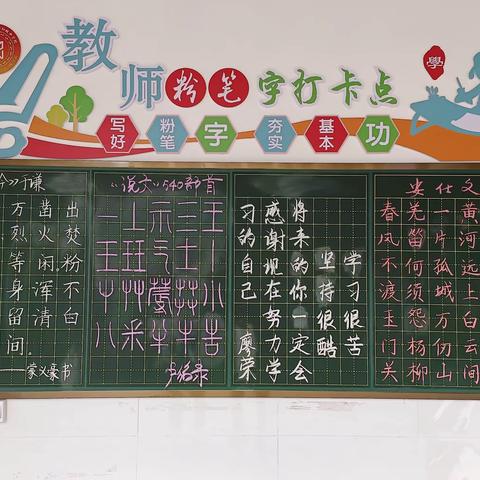 教师粉笔字打卡点
写好粉笔字夯实基本功
吟》于谦
万凿出
烈火焚
等闲.粉
身浑不
留清白
间.
——蒙义豪书
《说文》540部首
一丄示三王
玉玨气士丨
屮艸蓐茻小
八釆半牛告
学习很苦
坚持很酷
将来的你一定会
感谢现在努力学
习的自己 廖荣
安仕文
黄河远上白云间
一片孤城万仞山
羌笛何须怨杨柳
春风不渡玉门关
學